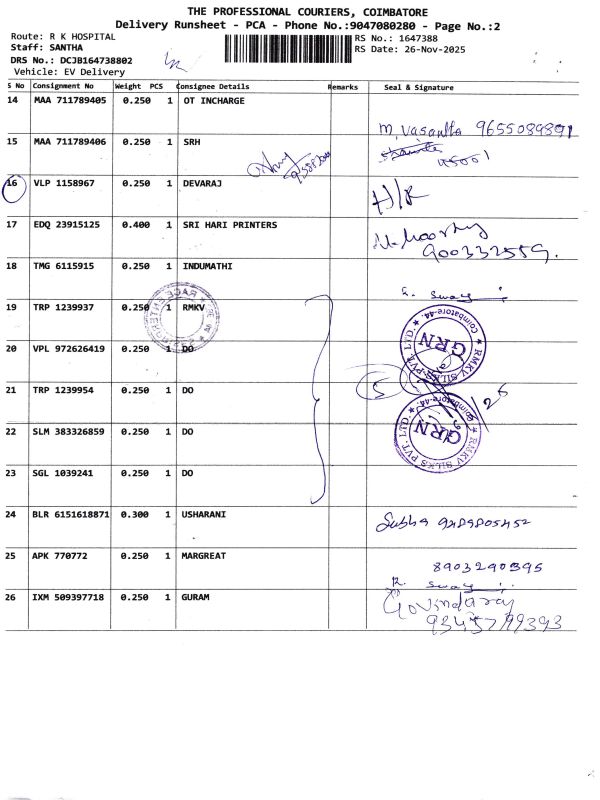 THE PROFESSIONAL COURIERS, COIMBATORE
Delivery Runsheet - PCA - Phone No.:9047080280 - Page No.:2
Route: R K HOSPITAL RS No.: 1647388
Staff: SANTHA RS Date: 26-Nov-2025
DRS No.: DCJB164738802
Vehicle: EV Delivery
S No Consignment No Weight PCS Consignee Details Remarks Seal & Signature
14 MAA 711789405 0.250 1 OT INCHARGE
M. Vasantha 9655089891
15 MAA 711789406 0.250 1 SRH
16 VLP 1158967 0.250 1 DEVARAJ
17 EDQ 23915125 0.400 1 SRI HARI PRINTERS
900332559.
18 TMG 6115915 0.250 1 INDUMATHI
19 TRP 1239937 0.250 1 RMKV
RMKV SILKS PVT. LTD. Coimbatore-44.
GRN
20 VPL 972626419 0.250 1 DO
5
21 TRP 1239954 0.250 1 DO
RMKV SILKS PVT. LTD. Coimbatore-44.
GRN
22 SLM 383326859 0.250 1 DO
23 SGL 1039241 0.250 1 DO
24 BLR 6151618871 0.300 1 USHARANI
Subha
25 APK 770772 0.250 1 MARGREAT
8903290395
26 IXM 509397718 0.250 1 GURAM
Govindaraj